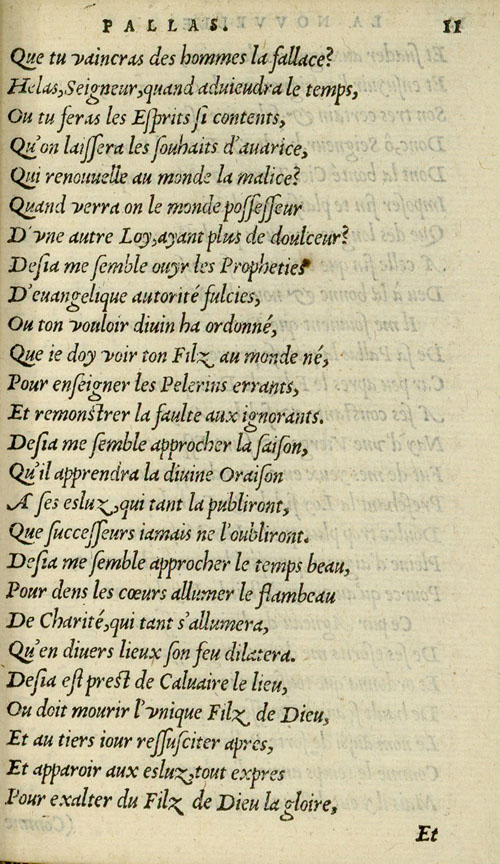 PALLAS. 11
Que tu vaincras des hommes la fallace?
Helas, Seigneur, quand aduiendra le temps,
Ou tu feras les Eſprits ſi contents,
Qu'on laiſſera les ſouhaits d'auarice,
Qui renouuelle au monde la malice?
Quand verra on le monde poſſeſſeur
D'vne autre Loy, ayant plus de doulceur?
Deſia me ſemble ouyr les Propheties
D'euangelique autorité fulcies,
Ou ton vouloir diuin ha ordonné,
Que ie doy voir ton Filz au monde né,
Pour enſeigner les Pelerins errants,
Et remonſtrer la faulte aux ignorants.
Deſia me ſemble approcher la ſaiſon,
Qu'il apprendra la diuine Oraiſon
A ſes esluz, qui tant la publiront,
Que ſucceſſeurs iamais ne l'oubliront.
Deſia me ſemble approcher le temps beau,
Pour dens les cœurs allumer le flambeau
De Charité, qui tant s'allumera,
Qu'en diuers lieux ſon feu dilatera.
Deſia eſt preſt de Caluaire le lieu,
Ou doit mourir l'vnique Filz de Dieu,
Et au tiers iour reſſuſciter apres,
Et apparoir aux esluz, tout expres
Pour exalter du Filz de Dieu la gloire,
Et